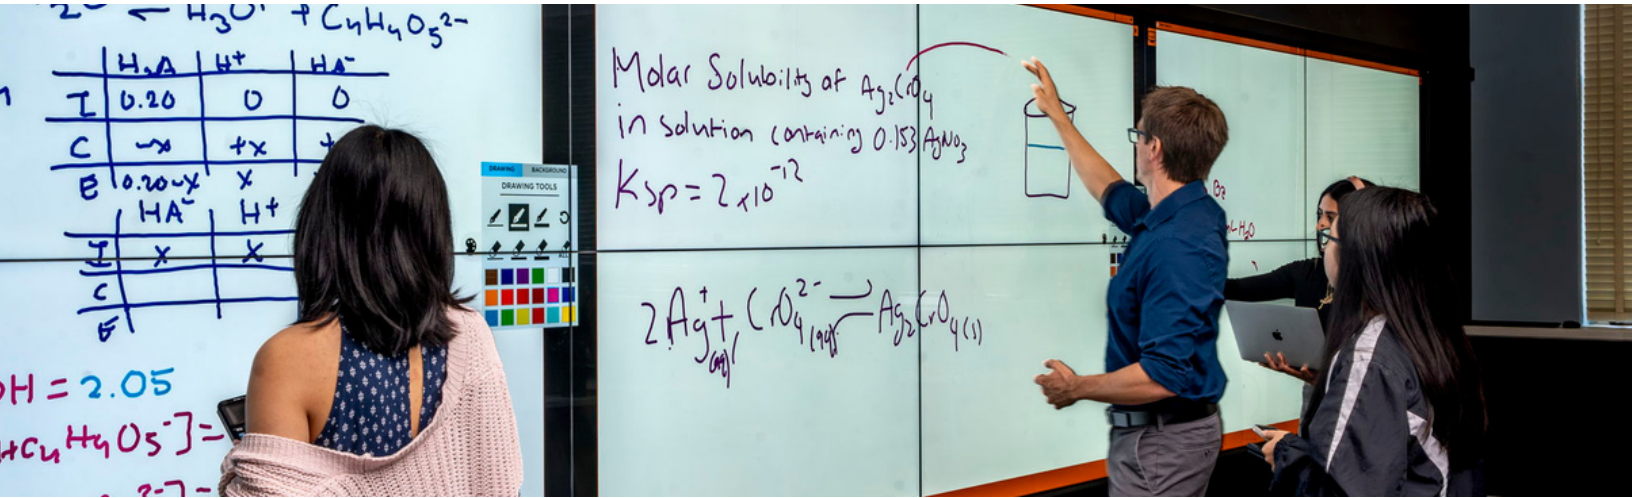 H₃O⁺ + C₄H₄O₅²⁻
H₂A H⁺ HA⁻
I 0.20 0 0
C -x +x +
E 0.20-x x
HA⁻ H⁺
I x x
C
E
H = 2.05
HC₄H₄O₅⁻] =
2-] -
DRAWING BACKGROUND
DRAWING TOOLS
ALL
Molar Solubility of Ag₂CrO₄
in solution containing 0.153 AgNO₃
Ksp = 2 x 10⁻¹²
2Ag⁺(aq) + CrO₄²⁻(aq) ⇌ Ag₂CrO₄(s)
Ba
H₂O